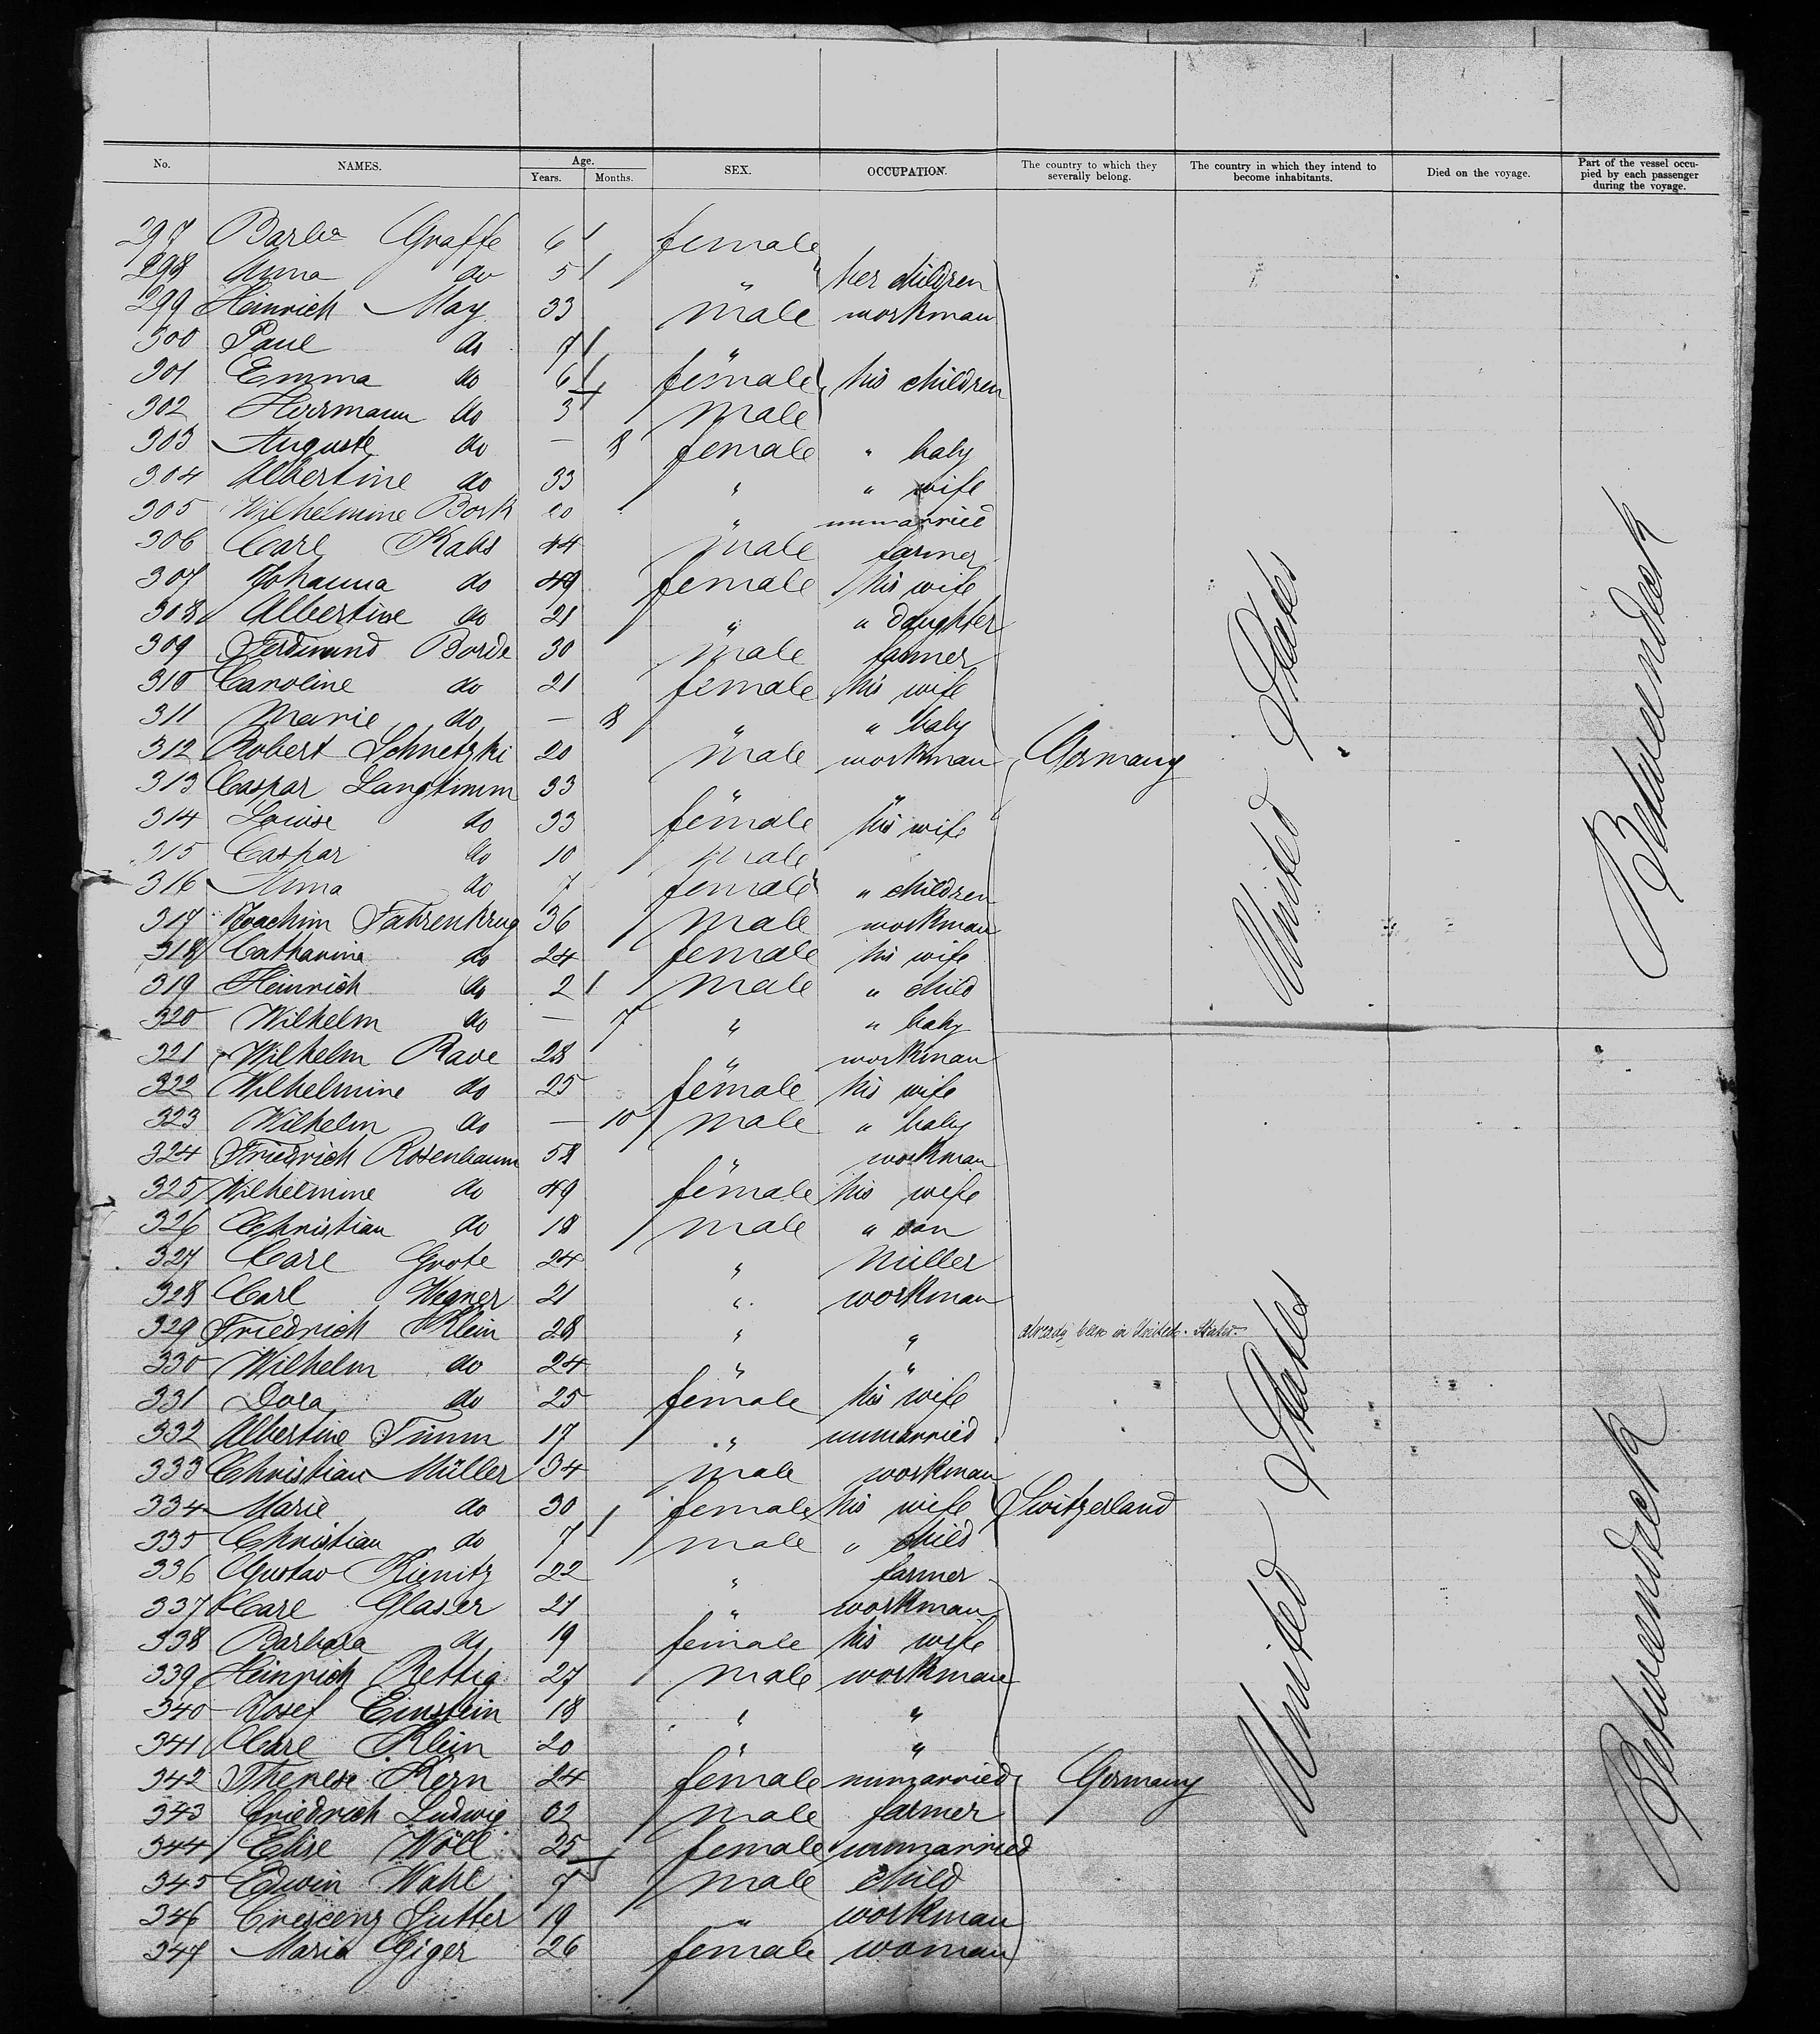 No. NAMES. Age. Years. Months. SEX. OCCUPATION. The country to which they severally belong. The country in which they intend to become inhabitants. Died on the voyage. Part of the vessel occupied by each passenger during the voyage.
297 Barba Graffe 6 female
298 Anna do 5 " her children
299 Heinrich May 33 male workman
300 Paul do 7 "
301 Emma do 6 female his children
302 Herrmann do 3 male
303 Auguste do — 8 female " baby
304 Albertine do 33 " " wife
305 Wilhelmine Bork 20 " unmarried
306 Carl Kabs 44 male farmer
307 Johanna do 49 female his wife
308 Albertine do 21 " " daughter
309 Ferdinand Borde 30 male farmer
310 Caroline do 21 female his wife
311 Marie do — 8 " " baby
312 Robert Schnetzki 20 male workman Germany United States Betweendeck
313 Caspar Langtimm 33 " "
314 Louise do 33 female his wife
315 Caspar do 10 male
316 Anna do 7 female " children
317 Joachim Fahrenkrug 36 male workman
318 Catharina do 24 female his wife
319 Heinrich do 2 male " child
320 Wilhelm do — 7 " " baby
321 Wilhelm Rave 28 " workman
322 Wilhelmine do 25 female his wife
323 Wilhelm do — 10 male " baby
324 Friedrich Rosenbaum 58 " workman
325 Wilhelmine do 49 female his wife
326 Christian do 18 male " son
327 Carl Grote 24 " Müller
328 Carl Wegner 21 " workman
329 Friedrich Klein 28 " " already been in United States.
330 Wilhelm do 24 " "
331 Dora do 25 female his wife
332 Albertine Timm 17 " unmarried
333 Christian Müller 34 male workman
334 Marie do 30 female his wife Switzerland
335 Christian do 7 male " child
336 Gustav Kienitz 22 " farmer
337 Carl Glaser 21 " workman
338 Barbara do 19 female his wife
339 Heinrich Rettig 27 male workman
340 Josef Einstein 18 " "
341 Carl Klein 20 " "
342 Therese Kern 24 female unmarried Germany United States Betweendeck
343 Friedrich Ludwig 62 male farmer
344 Elise Wöll 25 female unmarried
345 Edwin Wahl 7 male child
346 Crescenz Sutter 19 " workman
347 Maria Giger 26 female woman